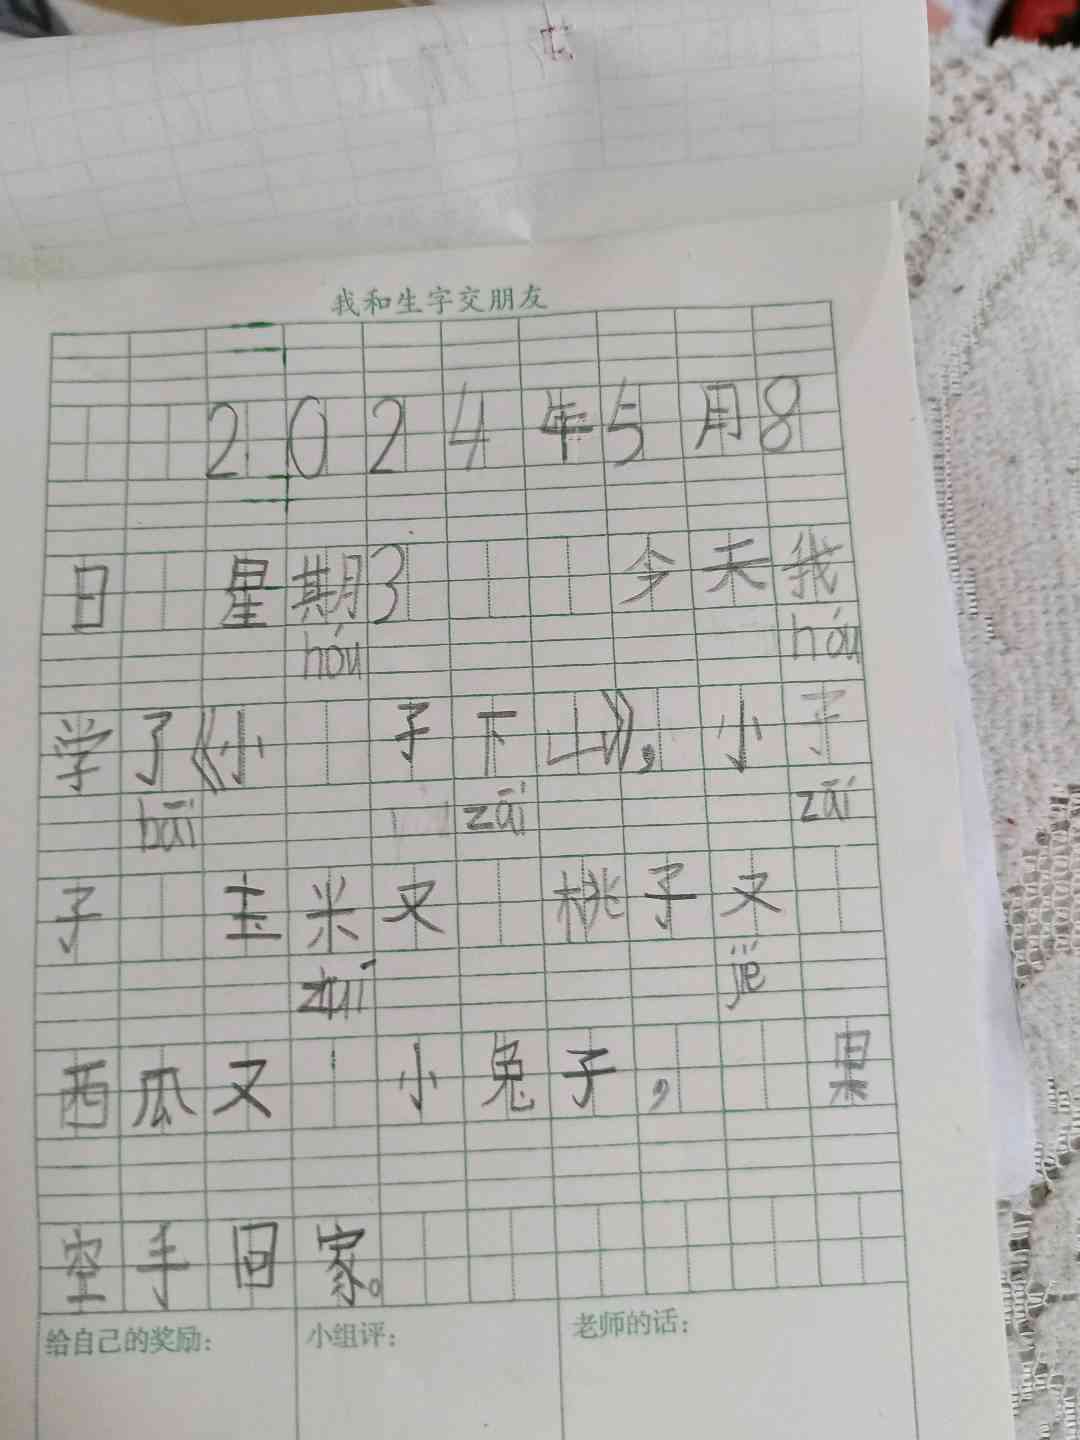 我和生字交朋友
2024年5月8
日 星期3 今天我
hóu hóu
学了《小 子下山》，小子
bāi zāi zāi
子 玉米又 桃子又
zāi jiē
西瓜又 小兔子， 果
空手回家。
给自己的奖励： 小组评： 老师的话：